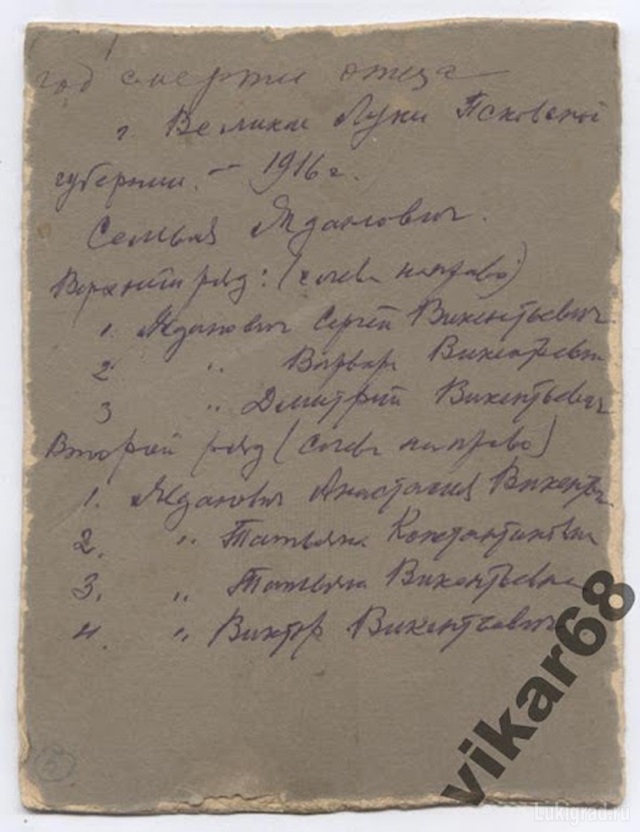 год смерти отца
г Великие Луки Псковской
губернии. – 1916 г.
Семья Жданович.
Верхний ряд: (слева направо)
1. Жданович Сергей Викентьевич
2 " Варвара Викентьевн
3 " Дмитрий Викентьевич
Второй ряд (слева направо)
1. Жданович Анастасия Викенть
2. " Татьяна Константиновн
3. " Татьяна Викентьевна
4. " Виктор Викентьевич
5
vikar68
Lukigrad.ru